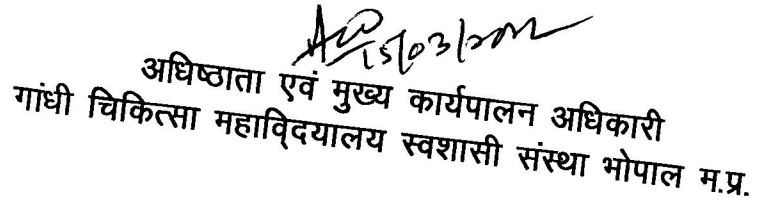 15/03/2012
अधिष्ठाता एवं मुख्य कार्यपालन अधिकारी
गांधी चिकित्सा महावि्दयालय स्वशासी संस्था भोपाल म.प्र.